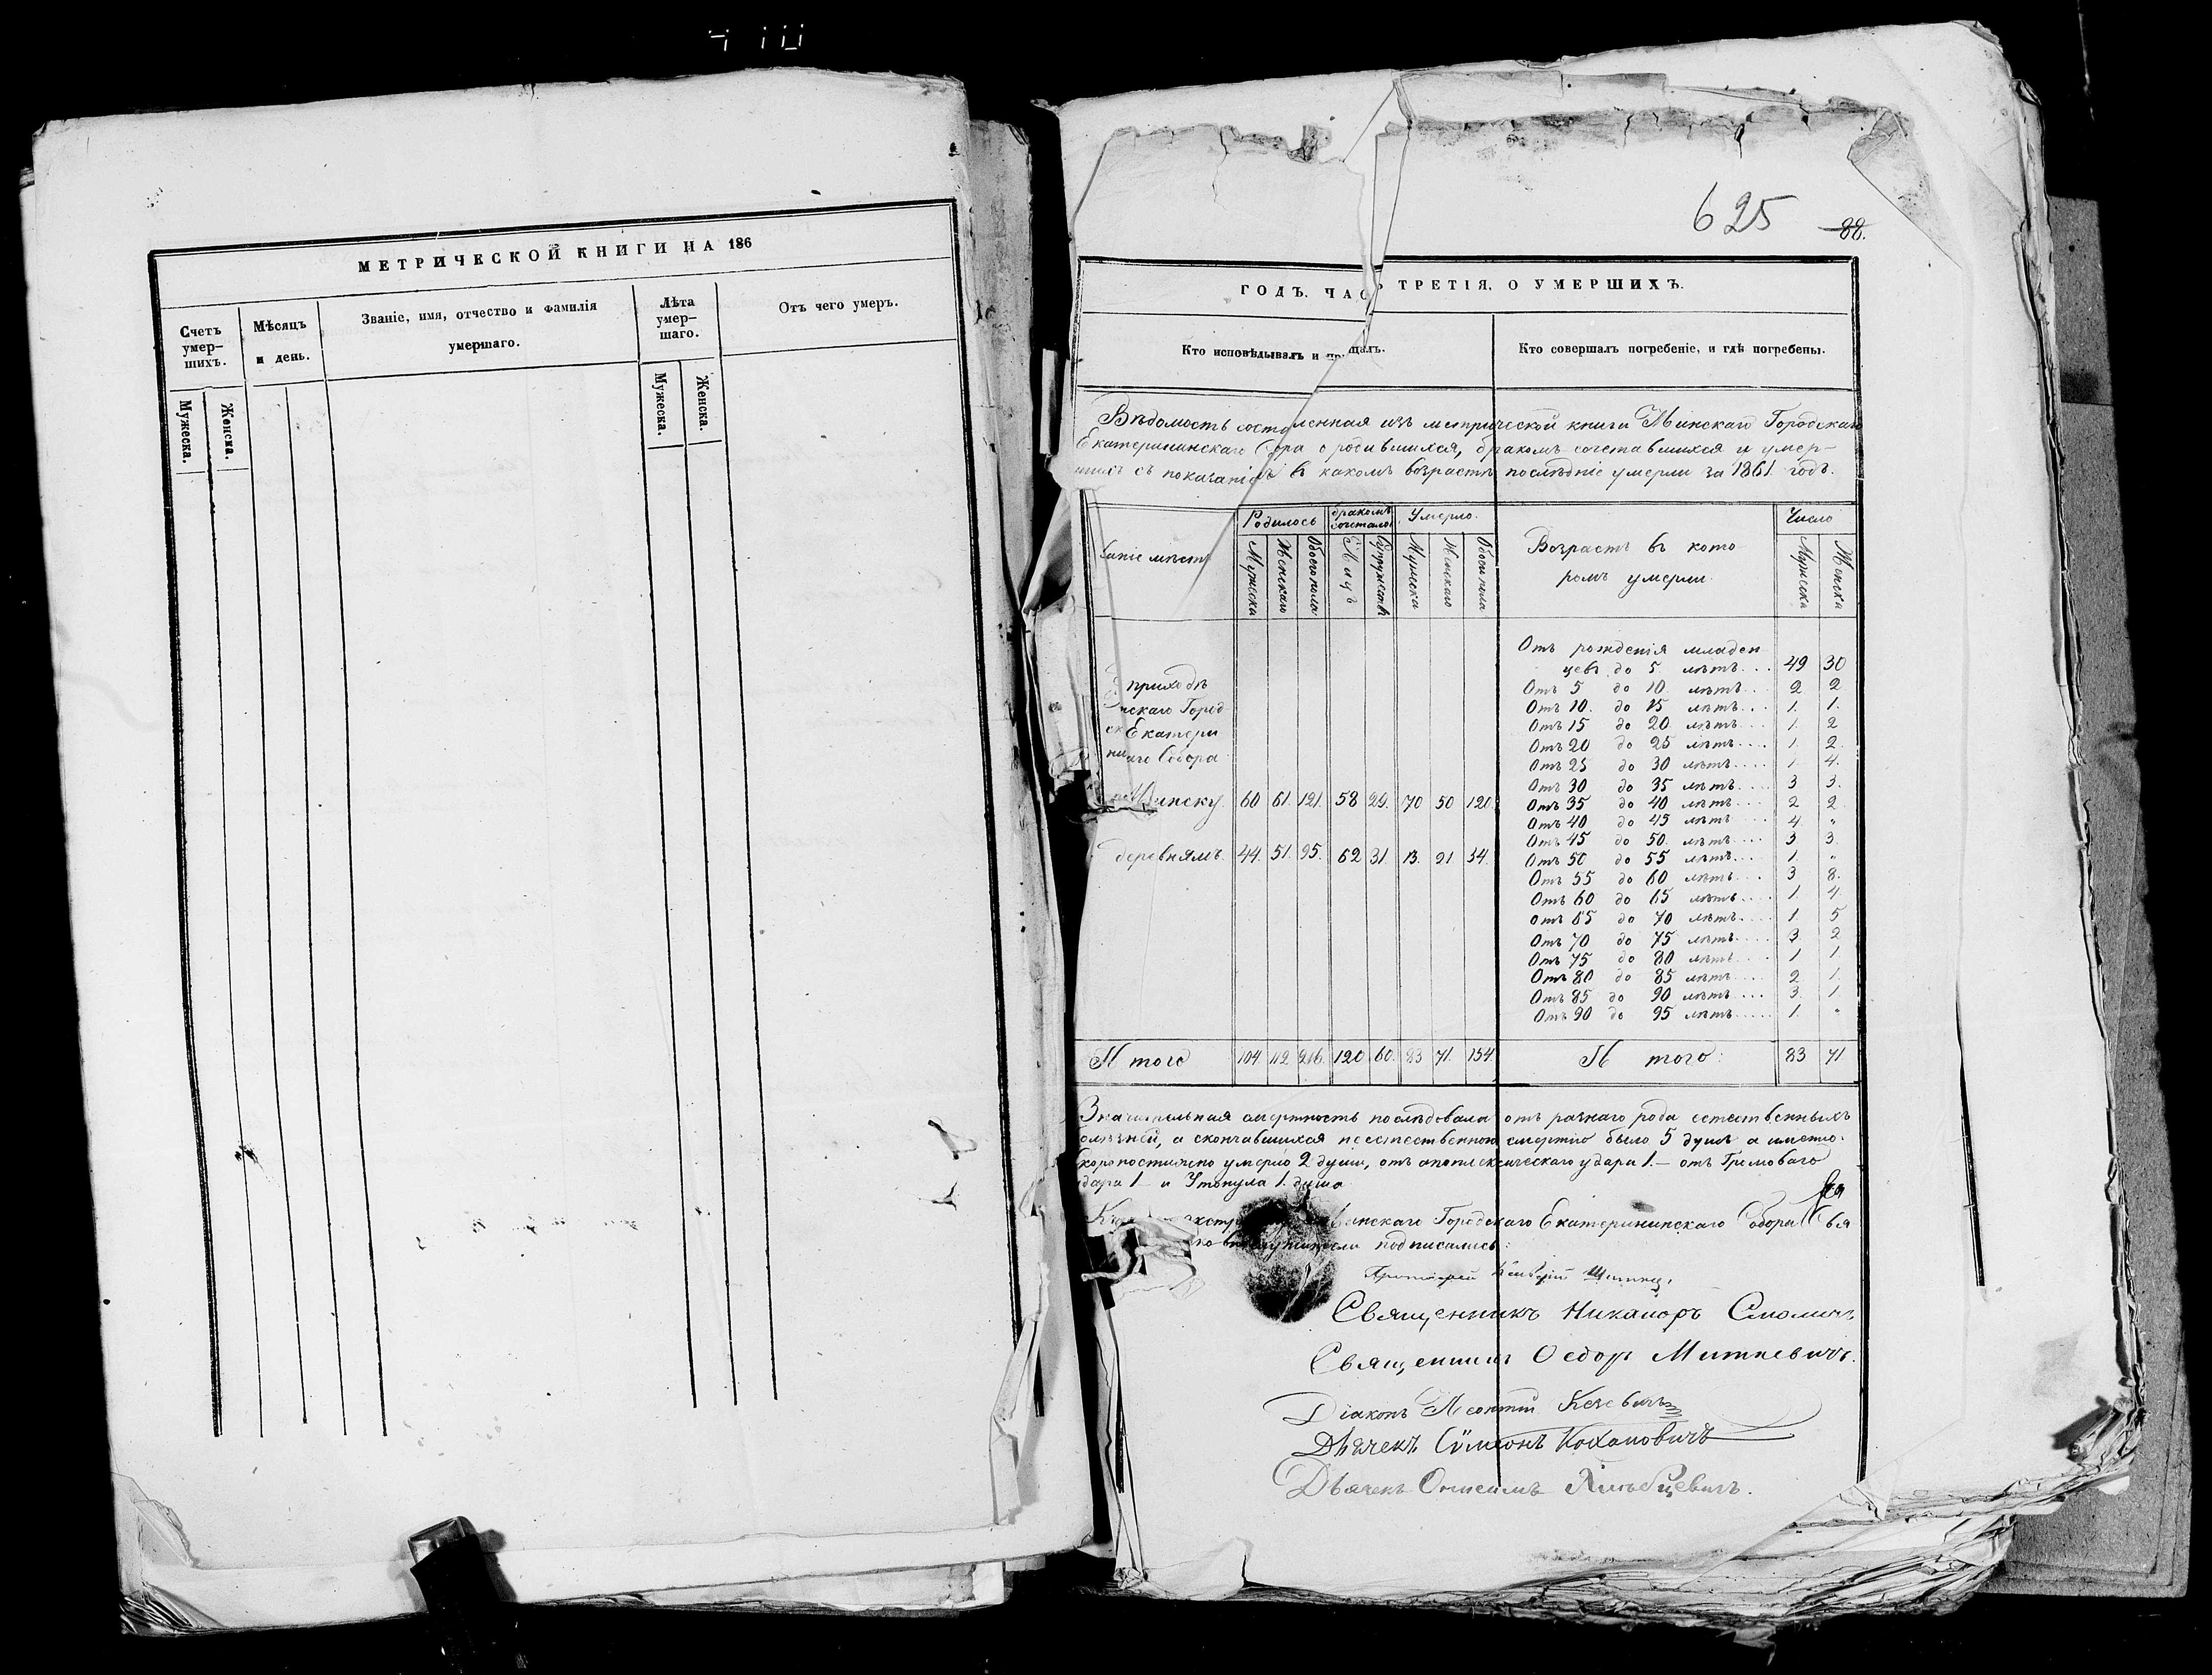 МЕТРИЧЕСКОЙ КНИГИ НА 186
Счетъ умер-шихъ.
Мѣсяцъ и день.
Званіе, имя, отчество и фамилія умершаго.
Лѣта умер-шаго.
Отъ чего умеръ.
Мужеска.
Женска.
Мужеска.
Женска.
625
88.
ГОДЪ. ЧАС ТРЕТІЯ, О УМЕРШИХЪ.
Кто исповѣдывалъ и пр щалъ.
Кто совершалъ погребеніе, и гдѣ погребены.
Вѣдомость составленная изъ метрической книги Минскаго Городскаго
Екатерининскаго Собора о родившихся, бракомъ сочетавшихся и умер-
шихъ съ показаніемъ въ какомъ возрастѣ послѣдніе умерли за 1861 годъ.
ваніе мѣстъ
Родилось
бракомъ сочеталось
Умерло.
Возрастъ въ кото
ромъ умерли
Число
Мужеска
Женскаго
Обоего пола
Лицъ
Супружествъ
Мужеска
Женскаго
Обоего пола
Мужеска
Женска
Отъ рожденія младен
цевъ до 5 лѣтъ... 49 30
Отъ 5 до 10 лѣтъ... 2 2
Отъ 10. до 15 лѣтъ... 1. 1.
Отъ 15 до 20 лѣтъ... 1. 2
Отъ 20 до 25 лѣтъ... 1. 2.
Отъ 25 до 30 лѣтъ... 1 4.
Отъ 30 до 35 лѣтъ... 3 3.
Отъ 35 до 40 лѣтъ... 2 2
Отъ 40 до 45 лѣтъ... 4 "
Отъ 45 до 50. лѣтъ... 3 3.
Отъ 50 до 55 лѣтъ... 1. "
Отъ 55 до 60 лѣтъ... 3 8.
Отъ 60 до 65 лѣтъ... 1. 4.
отъ 65 до 70 лѣтъ... 1. 5
Отъ 70 до 75 лѣтъ... 3 2
Отъ 75 до 80 лѣтъ... 1 1.
Отъ 80 до 85 лѣтъ... 2 1.
Отъ 85 до 90 лѣтъ... 3 1.
Отъ 90 до 95 лѣтъ... 1. "
приходѣ
нскаго Город
ск Екатери
нскаго Собора
Минску 60 61. 121. 58 29. 70 50 120.
деревнямъ. 44. 51. 95. 62 31. 13. 21 34.
И того 104 112 216. 120 60. 83 71. 154
И того: 83 71
Значительная смертность послѣдовала отъ разнаго рода естественныхъ
олѣзней, а скончавшихся неестественною смертію было 5 душъ а именно.
коропостижно умерло 2 души, отъ апоплексическаго удара 1.— отъ Громоваго
дара 1— и Утонула 1. душа
Къ экстр Минскаго Городскаго Екатерининскаго Собора Свя
но служители подписались:
Протоіерей
Священникъ Никаноръ Смоличъ
Священникъ Ѳеодоръ Миткевичъ.
Діаконъ Леонтій
Дьячекъ Сѵмеонъ Кохановичъ
Дьячекъ Онисимъ